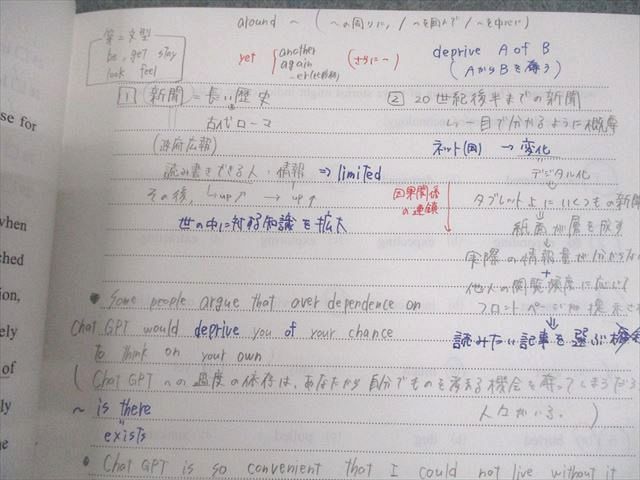 around ～ (～の周りに, / ～を囲んで / ～を中心に)
第二文型
be, get stay
look feel
yet another
again
-er(比較級)
(さらに～)
deprive A of B
(AからBを奪う)
1 新聞 = 長い歴史
古代ローマ
(政府広報)
読み書きできる人・情報 ⇒ limited
その後, up↗ → up↑
世の中に対する知識も拡大
因果関係
の連鎖
2 20世紀後半までの新聞
一目で分かるように概寧
ネット(図) → 変化
デジタル化
タブレット上にいくつもの新聞
紙面が層を成す
実際の情報量が分からな
+
他人の閲覧頻度に応じて
フロントページに提示
読みたい記事を選ぶ機会
• Some people argue that over dependence on
Chat GPT would deprive you of your chance
to think on your own
(Chat GPTへの過度の依存は、あなたから自分でものを考える機会を奪ってしまうだろ
人々がいる。)
～ is there
exists
• Chat GPT is so convenient that I could not live without it
se for
when
ched
tion,
ely
of
ly
e